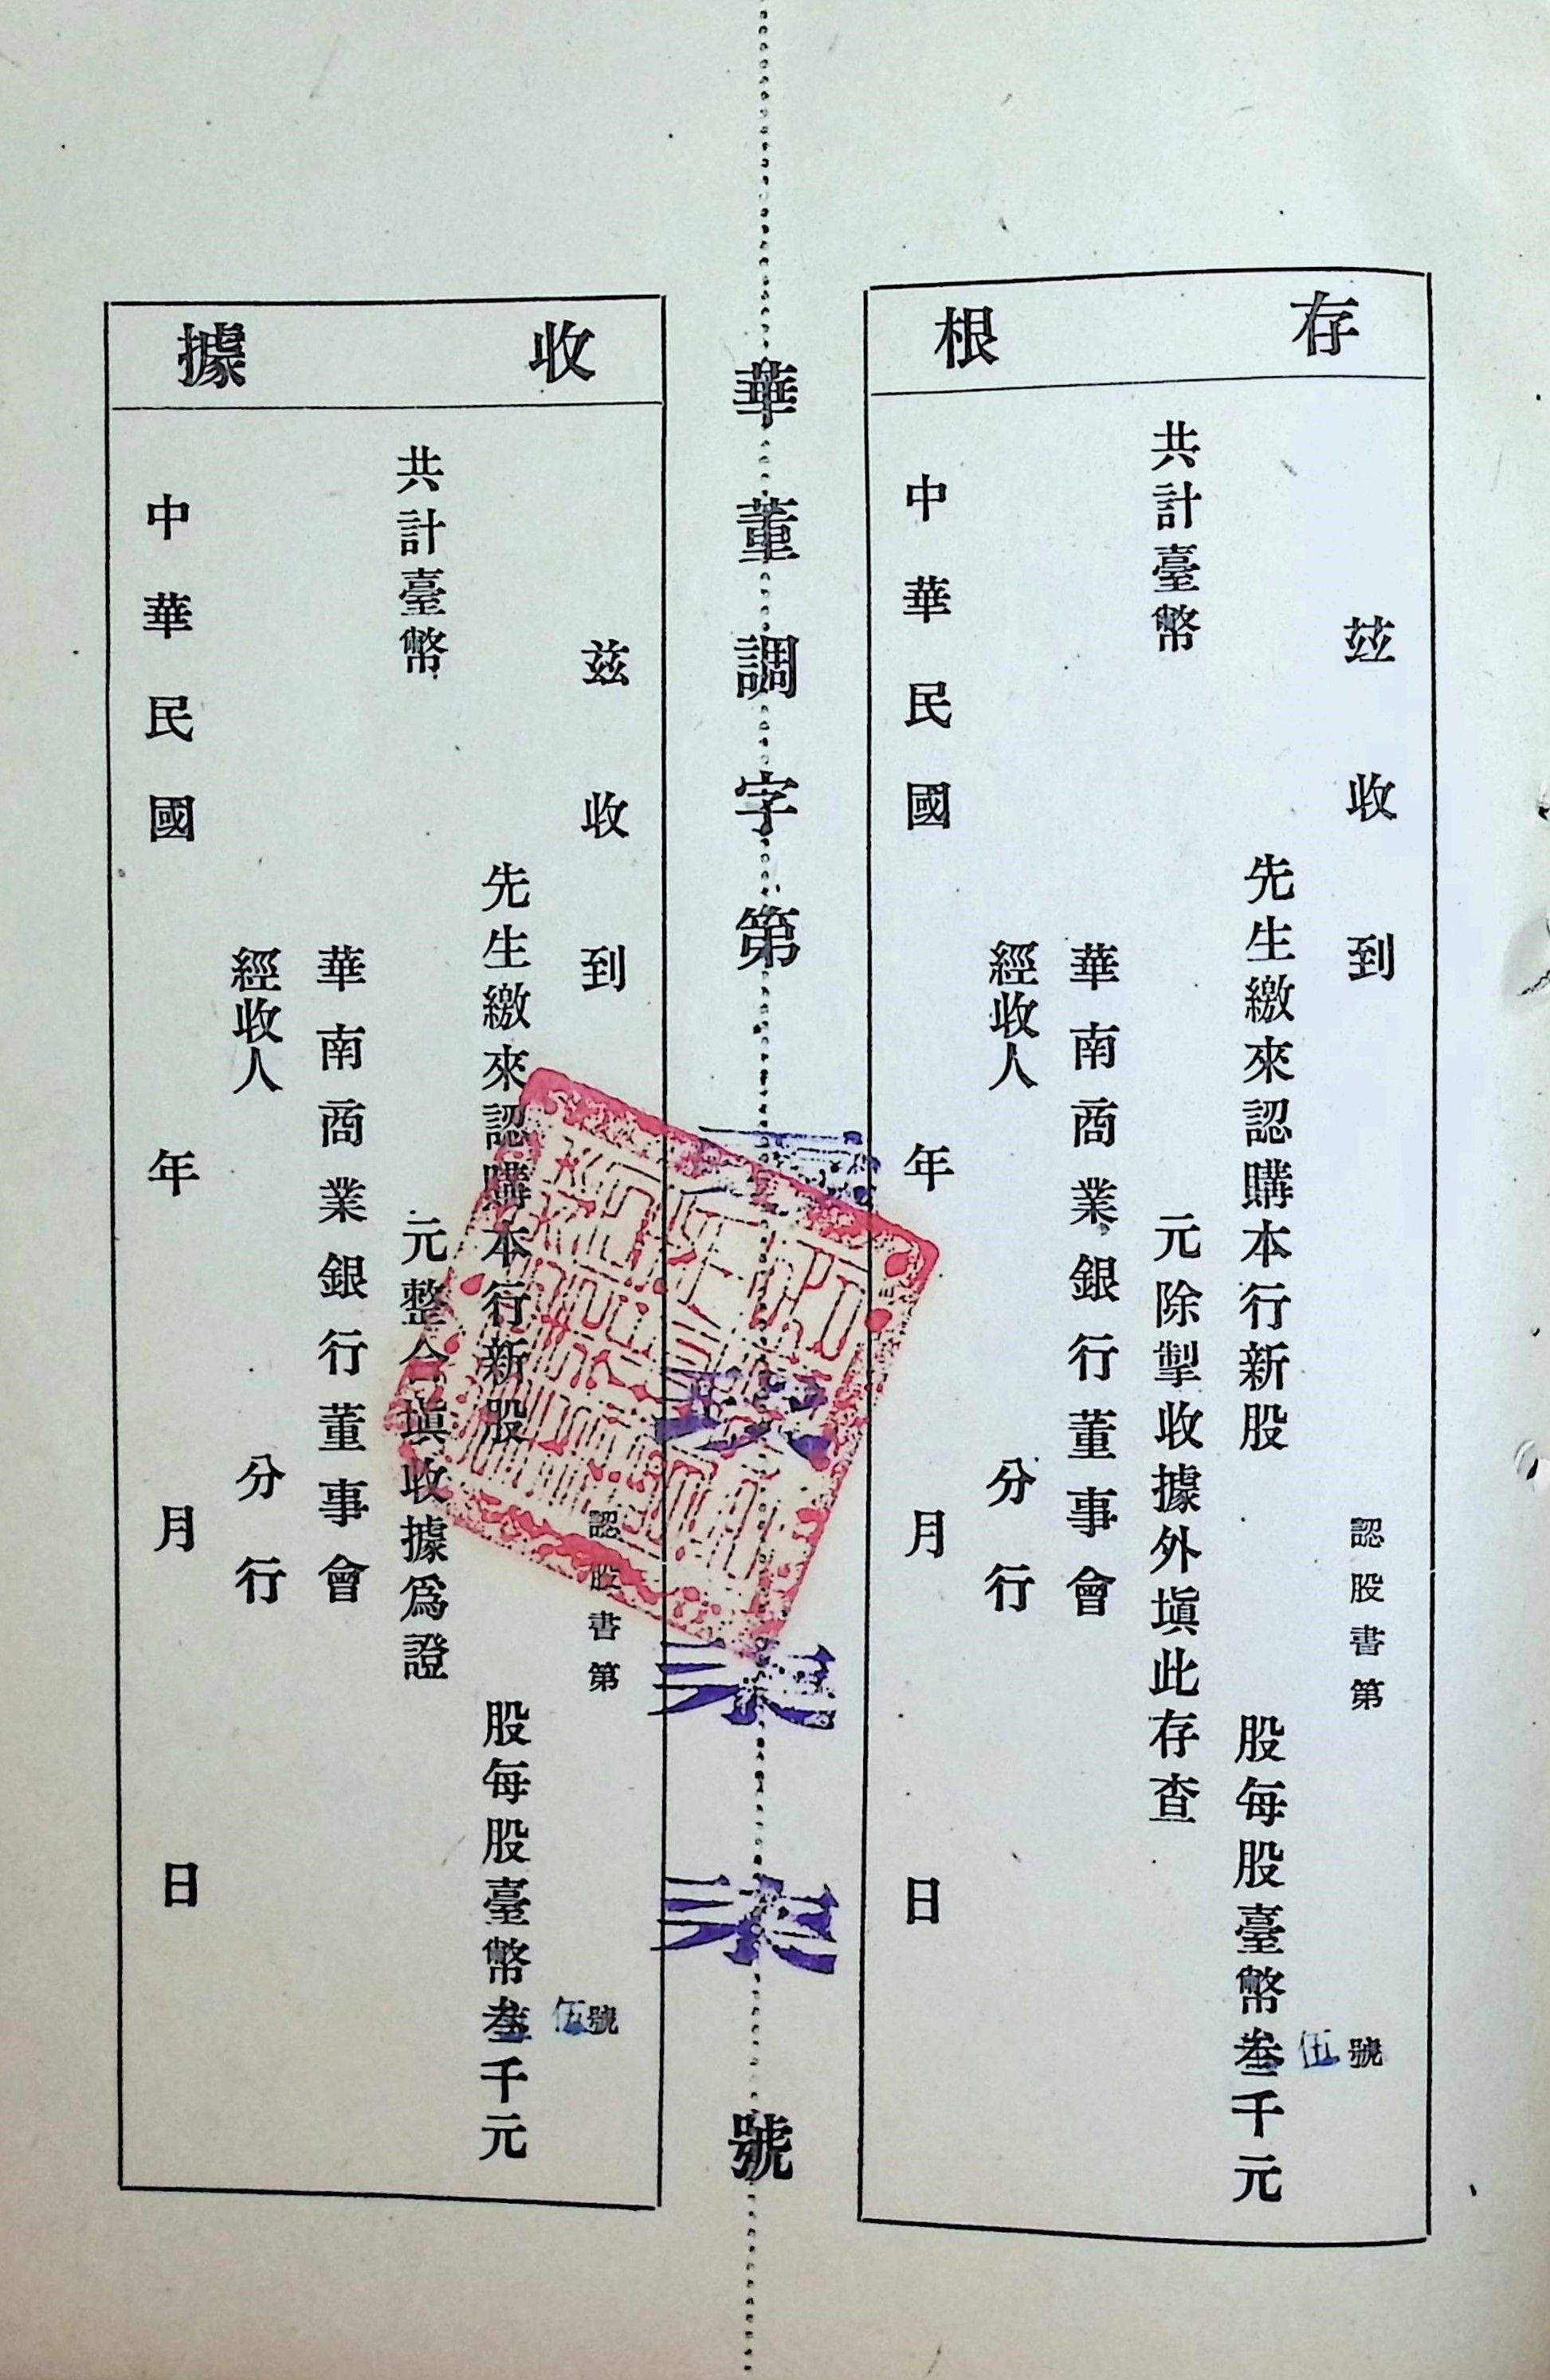 存根
茲收到
認股書第 號
先生繳來認購本行新股 股每股臺幣叁千元
伍
共計臺幣 元除掣收據外塡此存查
華南商業銀行董事會
經收人 分行
中華民國 年 月 日
華董調字第 玖柒柒號
收據
兹收到
認股書第 號
先生繳來認購本行新股 股每股臺幣叁千元
伍
共計臺幣 元整合塡收據爲證
華南商業銀行董事會
經收人 分行
中華民國 年 月 日